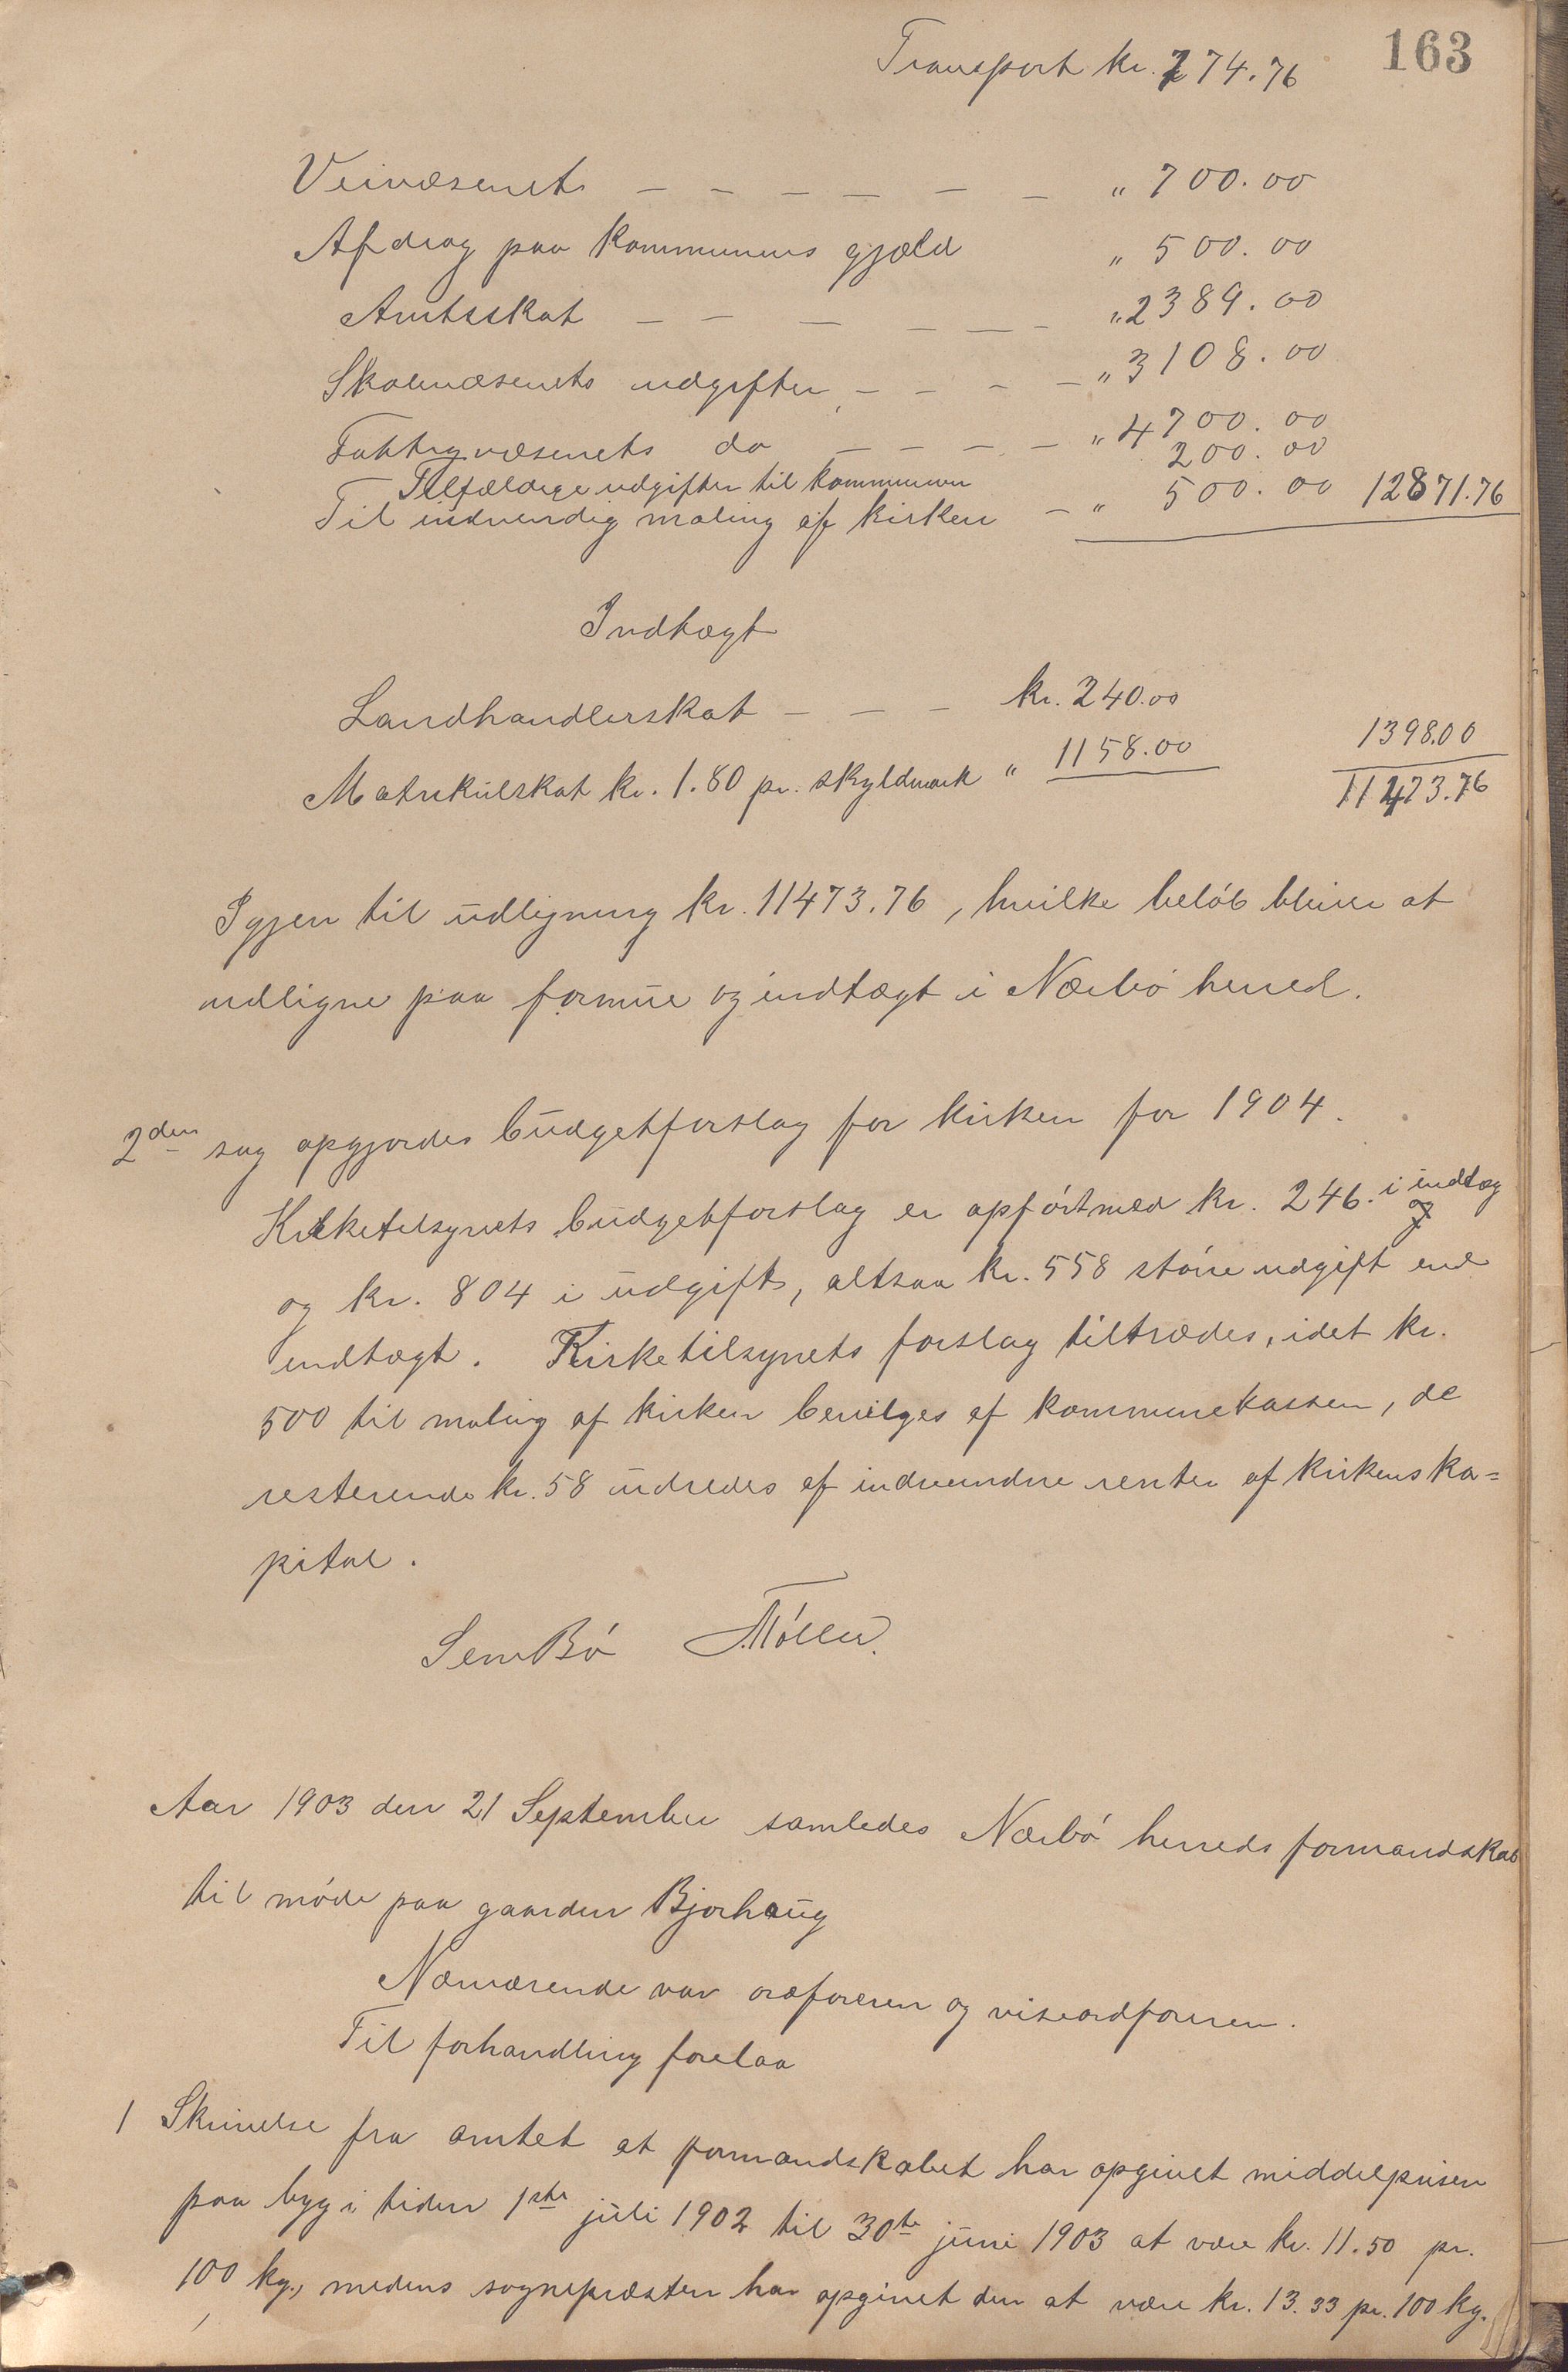 163
Transport kr. 774.76
Veivæsenet — — — — — — " 700.00
Afdrag paa kommunens gjæld " 500.00
Amtsskat — — — — — — " 2389.00
Skolevæsenets udgifter — — — — " 3108.00
Fattigvæsenets do — — — — " 4700.00
Tilfældige udgifter til kommunen 200.00
Til indvendig maling af kirken — " 500.00 12871.76
Indtægt
Landhandlerskat — — — kr. 240.00
Matrikulskat kr. 1.80 pr. skyldmark " 1158.00 1398.00
11473.76
Igjen til udligning kr. 11473.76, hvilke beløb bliver at
udligne paa formue og indtægt i Nærbø herred.
2den sag opgjordes budgetforslag for kirken for 1904.
Kirketilsynets budgetforslag er opført med kr. 246. i indtæg
og kr. 804 i udgift, altsaa kr. 558 større udgift end
indtægt. Kirketilsynets forslag tiltrædes, idet kr.
500 til maling af kirken bevilges af kommunekassen, de
resterende kr. 58 udredes af indvundne renter af kirkens ka=
pital.
Sem Bø Møller.
Aar 1903 den 21 September samledes Nærbø herreds formandskab
til møde paa gaarden Bjorhaug
Nærværende var ordføreren og viseordføreren.
Til forhandling forelaa
1 Skrivelse fra amtet at formandskabet har opgivet middelprisen
paa byg i tiden 1ste juli 1902 til 30te juni 1903 at være kr. 11.50 pr.
100 kg., medens sognepræsten har opgivet den at være kr. 13.33 pr. 100 kg.